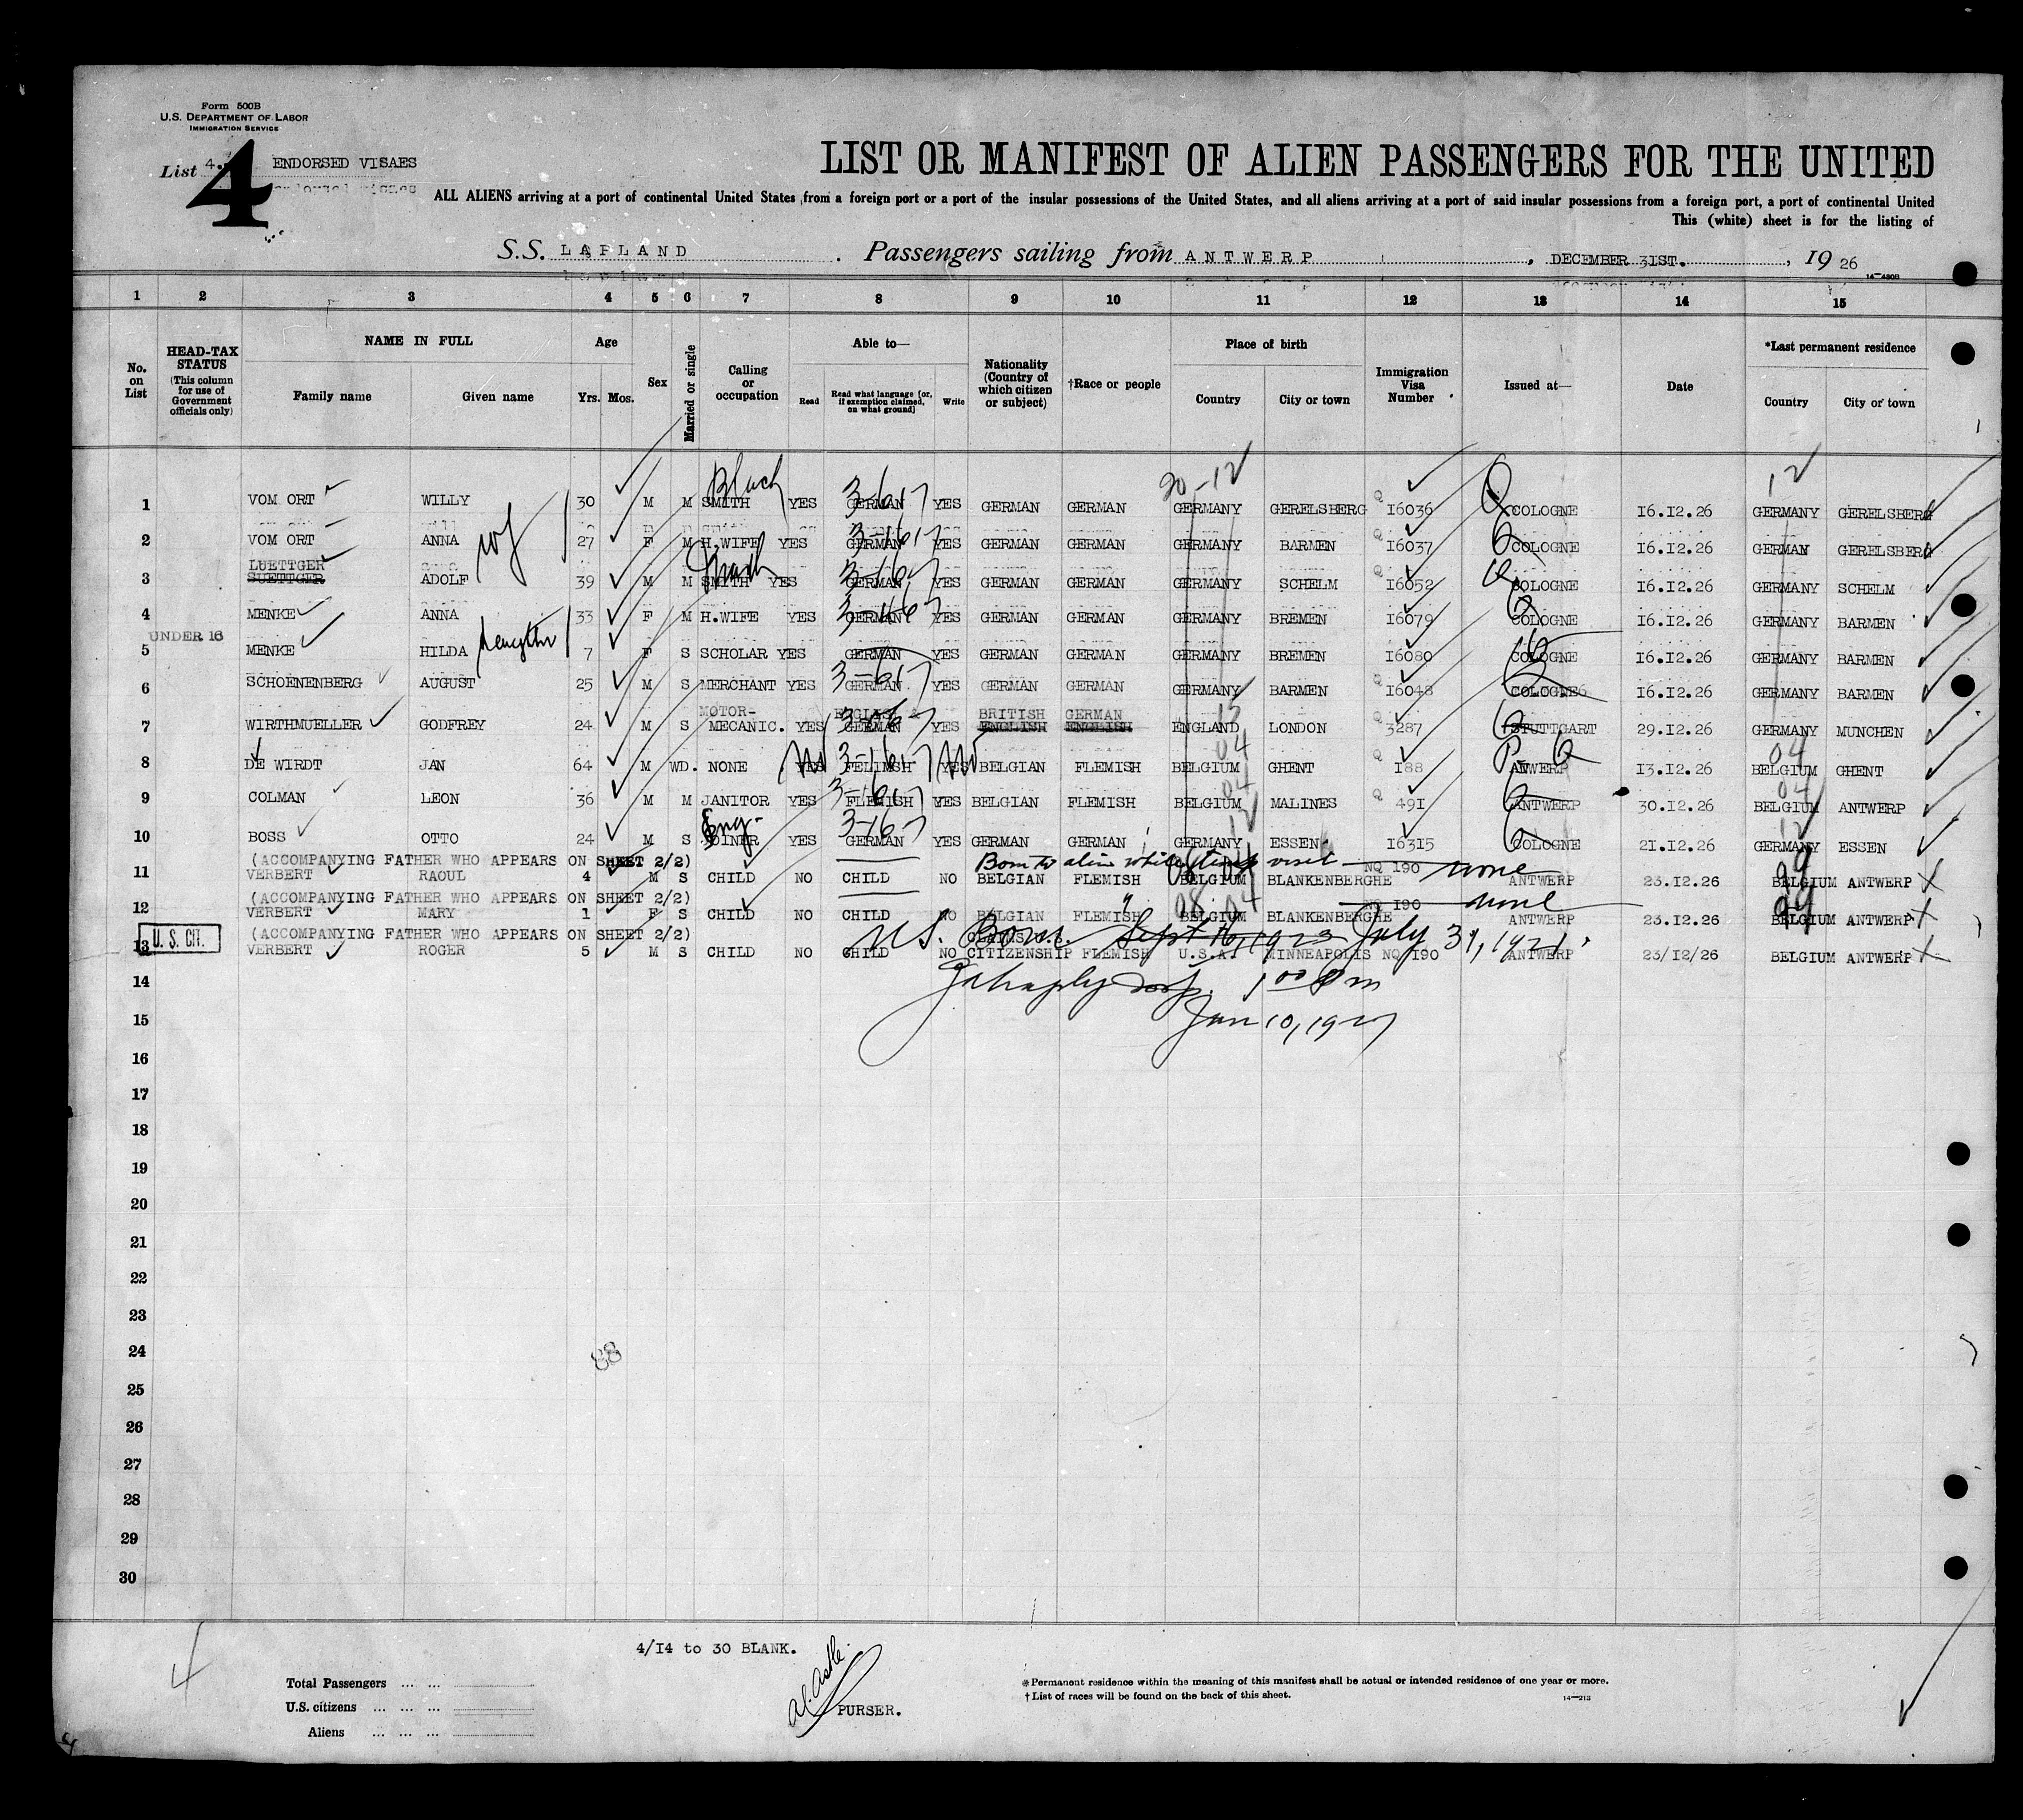 Form 500B
U.S. DEPARTMENT OF LABOR
IMMIGRATION SERVICE
List 4. ENDORSED VISAES
4
LIST OR MANIFEST OF ALIEN PASSENGERS FOR THE UNITED
ALL ALIENS arriving at a port of continental United States from a foreign port or a port of the insular possessions of the United States, and all aliens arriving at a port of said insular possessions from a foreign port, a port of continental United
This (white) sheet is for the listing of
S.S. LAPLAND. Passengers sailing from ANTWERP, DECEMBER 31ST., 19 26
14—4300
1 2 3 4 5 6 7 8 9 10 11 12 13 14 15
No. on List
HEAD-TAX STATUS (This column for use of Government officials only)
NAME IN FULL
Family name Given name
Age
Yrs. Mos.
Sex
Married or single
Calling or occupation
Able to—
Read Read what language [or, if exemption claimed, on what ground] Write
Nationality (Country of which citizen or subject)
†Race or people
Place of birth
Country City or town
Immigration Visa Number
Issued at—
Date
*Last permanent residence
Country City or town
20-12 12
Black 3-1617
1 VOM ORT WILLY 30 M M SMITH YES GERMAN YES GERMAN GERMAN GERMANY GERELSBERG Q I6036 COLOGNE I6.I2.26 GERMANY GERELSBERG
wf
2 VOM ORT ANNA 27 F M H.WIFE YES GERMAN YES GERMAN GERMAN GERMANY BARMEN Q I6037 COLOGNE I6.I2.26 GERMAN GERELSBERG
LUETTGER
3 SUETTGER ADOLF 39 M M SMITH YES GERMAN YES GERMAN GERMAN GERMANY SCHELM Q I6052 COLOGNE I6.I2.26 GERMANY SCHELM
4 MENKE ANNA 33 F M H.WIFE YES GERMAN YES GERMAN GERMAN GERMANY BREMEN Q I6079 COLOGNE I6.I2.26 GERMANY BARMEN
UNDER 16
5 MENKE HILDA 7 F S SCHOLAR YES GERMAN YES GERMAN GERMAN GERMANY BREMEN Q I6080 COLOGNE I6.I2.26 GERMANY BARMEN
daughter
6 SCHOENENBERG AUGUST 25 M S MERCHANT YES GERMAN YES GERMAN GERMAN GERMANY BARMEN Q I6048 COLOGNE I6.I2.26 GERMANY BARMEN
MOTOR- ENGLISH & BRITISH GERMAN 15
7 WIRTHMUELLER GODFREY 24 M S MECANIC. YES GERMAN YES ENGLISH ENGLISH ENGLAND LONDON Q 3287 STUTTGART 29.I2.26 GERMANY MUNCHEN
04 04
8 DE WIRDT JAN 64 M WD. NONE YES No FELIMSH YES No BELGIAN FLEMISH BELGIUM GHENT Q I88 ANTWERP I3.I2.26 BELGIUM GHENT
04 04
9 COLMAN LEON 36 M M JANITOR YES FLEMISH YES BELGIAN FLEMISH BELGIUM MALINES Q 49I ANTWERP 30.I2.26 BELGIUM ANTWERP
Eng- 12 12
10 BOSS OTTO 24 M S JOINER YES GERMAN YES GERMAN GERMAN GERMANY ESSEN I63I5 COLOGNE 2I.I2.26 GERMANY ESSEN
(ACCOMPANYING FATHER WHO APPEARS ON SHEET 2/2) Born to alien while temp visit
11 VERBERT RAOUL 4 M S CHILD NO CHILD NO BELGIAN FLEMISH BELGIUM BLANKENBERGHE NQ I90 none ANTWERP 23.I2.26 BELGIUM ANTWERP
(ACCOMPANYING FATHER WHO APPEARS ON SHEET 2/2) 08 04 99
12 VERBERT MARY 1 F S CHILD NO CHILD NO BELGIAN FLEMISH BELGIUM BLANKENBERGHE NQ I90 none ANTWERP 23.I2.26 BELGIUM ANTWERP
U. S. CIT. (ACCOMPANYING FATHER WHO APPEARS ON SHEET 2/2) U.S. Born Sept 16, 1923 July 31, 1921.
13 VERBERT ROGER 5 M S CHILD NO CHILD NO CITIZENSHIP FLEMISH U.S.A. MINNEAPOLIS NQ I90 ANTWERP 23/I2/26 BELGIUM ANTWERP
14 1 00 Pm
15 Jan 10, 1927
16
17
18
19
20
21
22
23
24
88
25
26
27
28
29
30
4/I4 to 30 BLANK.
4
Total Passengers
U.S. citizens
Aliens
PURSER.
*Permanent residence within the meaning of this manifest shall be actual or intended residence of one year or more.
†List of races will be found on the back of this sheet.
14—213